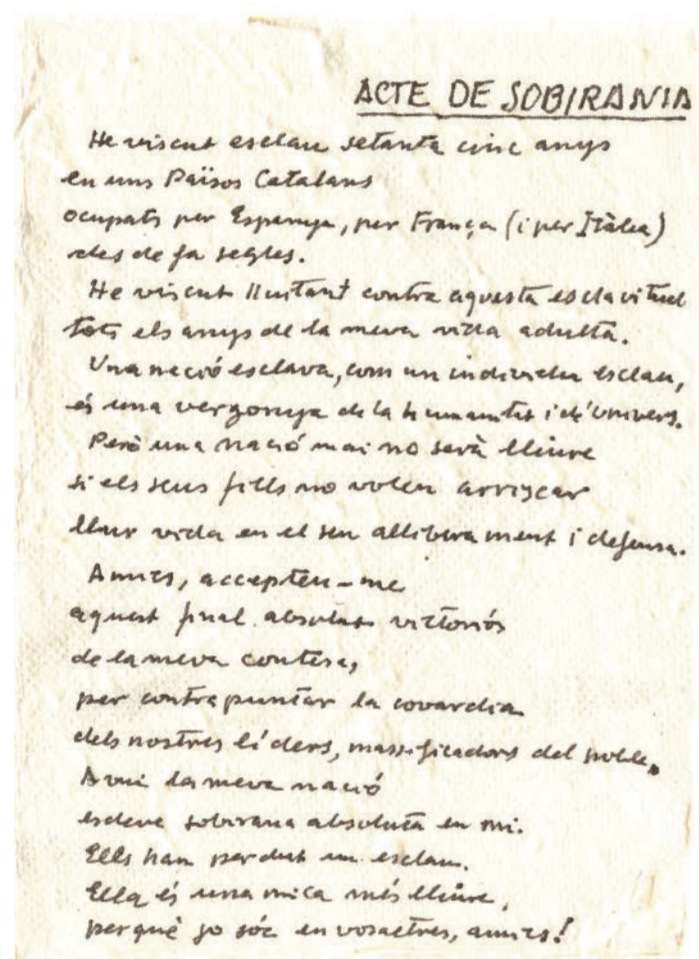 ACTE DE SOBIRANIA
He viscut esclau setanta cinc anys
en uns Països Catalans
ocupats per Espanya, per França (i per Itàlia)
des de fa segles.
He viscut lluitant contra aquesta esclavitud
tots els anys de la meva vida adulta.
Una nació esclava, com un individu esclau,
és una vergonya de la humanitat i de l'univers.
Però una nació mai no serà lliure
si els seus fills no volen arriscar
llur vida en el seu alliberament i defensa.
Amics, accepteu-me
aquest final absolut victoriós
de la meva contesa,
per contrapuntar la covardia
dels nostres líders, massificadors del poble.
Avui la meva nació
esdevé sobirana absoluta en mi.
Ells han perdut un esclau.
Ella és una mica més lliure,
perquè jo sóc en vosaltres, amics!